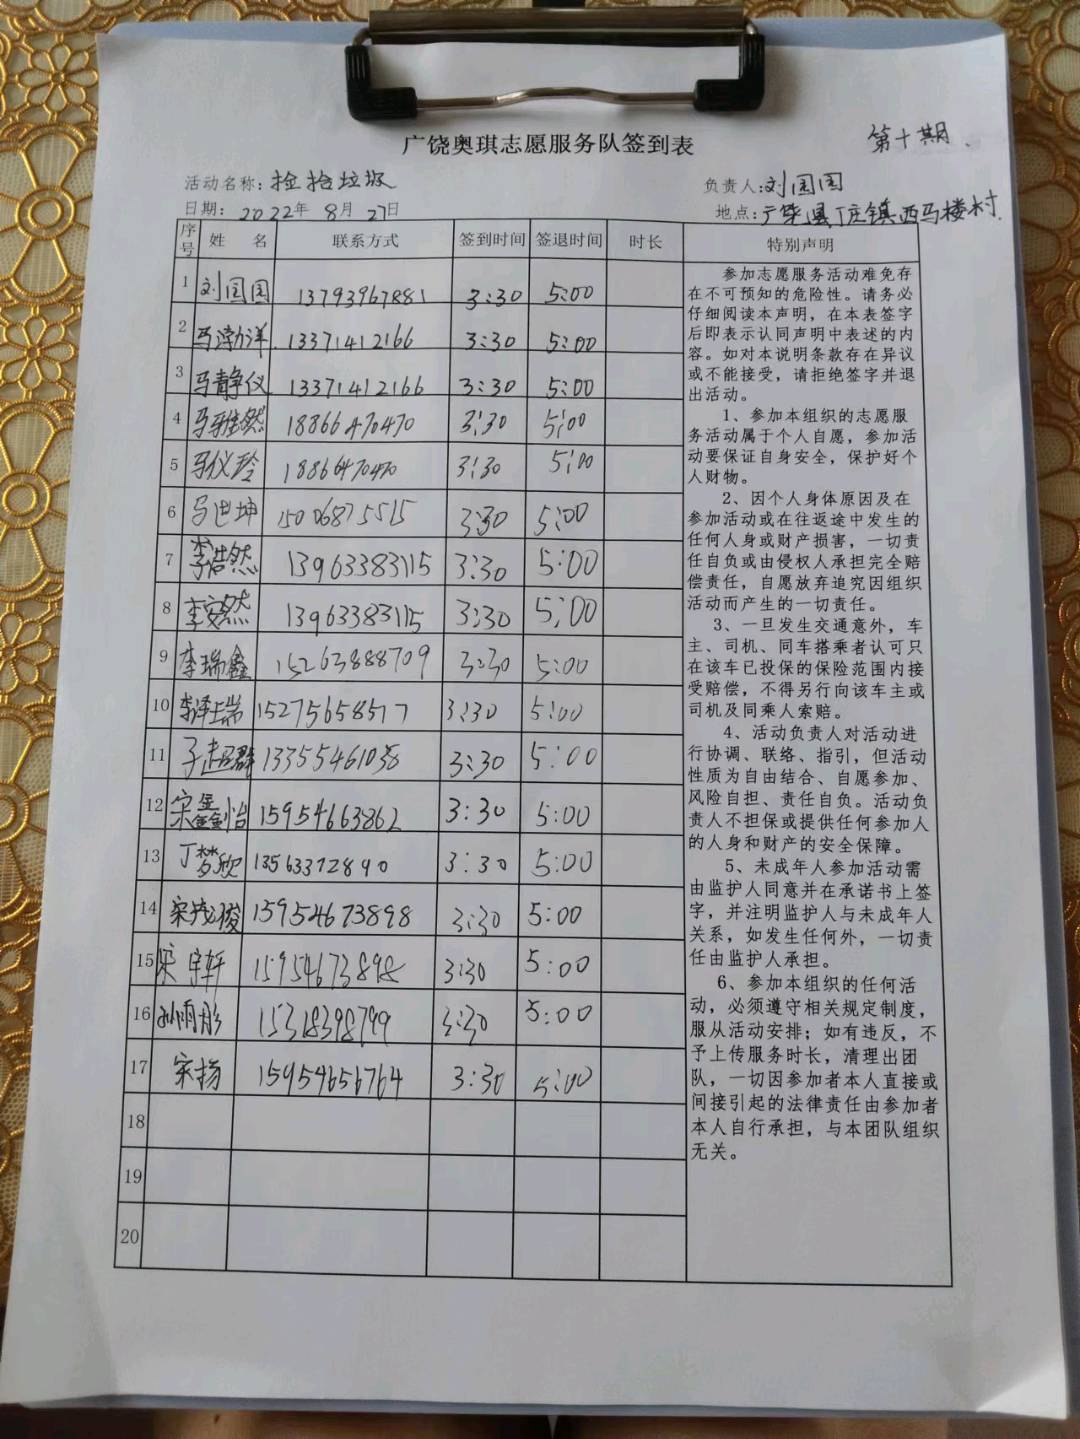 广饶奥琪志愿服务队签到表
第十期.
活动名称:捡拾垃圾 负责人:刘国国
日期: 2022年8月27日 地点:广饶县丁庄镇西马楼村.
序号 姓 名 联系方式 签到时间 签退时间 时长 特别声明
1 刘国国 13793967881 3:30 5:00
2 马渤洋 13371412166 3:30 5:00
3 马静仪 13371412166 3:30 5:00
4 马雅然 18866470470 3:30 5:00
5 马仪玲 18866470470 3:30 5:00
6 马世坤 15006875515 3:30 5:00
7 李浩然 13963383115 3:30 5:00
8 李安然 13963383115 3:30 5:00
9 李瑞鑫 15263888709 3:30 5:00
10 李泽瑞 15275658517 3:30 5:00
11 子超群 13355461038 3:30 5:00
12 宋鑫怡 15954663862 3:30 5:00
13 丁梦欣 13563372890 3:30 5:00
14 宋茂俊 15954673898 3:30 5:00
15 宋宇轩 15954673898 3:30 5:00
16 孙雨彤 15318398799 3:30 5:00
17 宋扬 15954656764 3:30 5:00
18
19
20
参加志愿服务活动难免存
在不可预知的危险性。请务必
仔细阅读本声明，在本表签字
后即表示认同声明中表述的内
容。如对本说明条款存在异议
或不能接受，请拒绝签字并退
出活动。
1、参加本组织的志愿服
务活动属于个人自愿，参加活
动要保证自身安全，保护好个
人财物。
2、因个人身体原因及在
参加活动或在往返途中发生的
任何人身或财产损害，一切责
任自负或由侵权人承担完全赔
偿责任，自愿放弃追究因组织
活动而产生的一切责任。
3、一旦发生交通意外，车
主、司机、同车搭乘者认可只
在该车已投保的保险范围内接
受赔偿，不得另行向该车主或
司机及同乘人索赔。
4、活动负责人对活动进
行协调、联络、指引，但活动
性质为自由结合、自愿参加、
风险自担、责任自负。活动负
责人不担保或提供任何参加人
的人身和财产的安全保障。
5、未成年人参加活动需
由监护人同意并在承诺书上签
字，并注明监护人与未成年人
关系，如发生任何外，一切责
任由监护人承担。
6、参加本组织的任何活
动，必须遵守相关规定制度，
服从活动安排；如有违反，不
予上传服务时长，清理出团
队，一切因参加者本人直接或
间接引起的法律责任由参加者
本人自行承担，与本团队组织
无关。